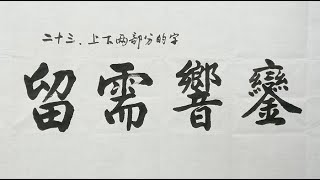 二十三、上下两部分的字
留需響鑾